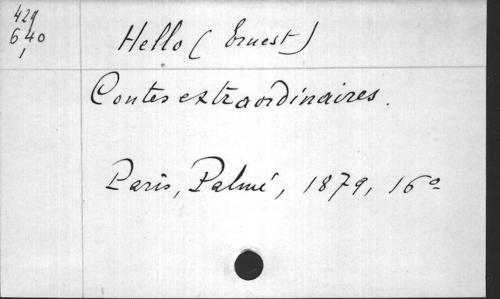 429
640
1
Hello (Ernest)
Contes extraordinaires.
Paris, Palmé, 1879, 16º